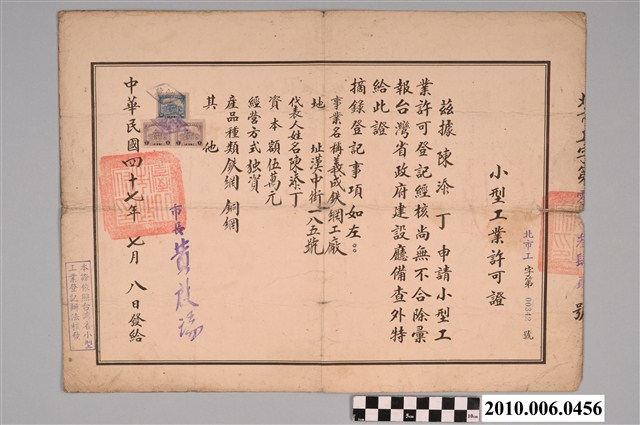 小型工業許可證
北市工 字第 00342 號
茲據 陳添丁 申請小型工
業許可登記經核尚無不合除彙
報台灣省政府建設廳備查外特
給此證
摘錄登記事項如左：
事業名稱義成鉄網工廠
地址漢中街一八五號
代表人姓名陳添丁
資本額伍萬元
經營方式独資
産品種類鉄網 銅網
其他
市長 黃啟瑞
中華民國四十七年七月八日發給
本證依照台灣省小型
工業登記辦法核發
2010.006.0456